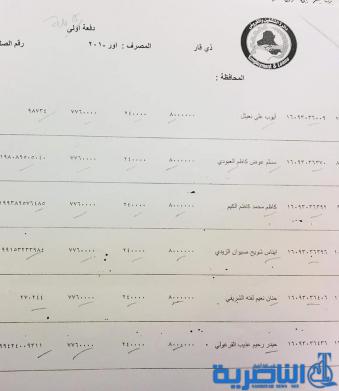 دفعة اولى
ذي قار المصرف : اور ٢٠١٠ رقم الصك
المحافظة :
Employment & Loans
١٦٠٩٣٠٣٦٠٠٩ ايوب علي نعيثل ٨٠٠٠٠٠٠ ٢٤٠٠٠٠ ٧٧٦٠٠٠٠ ٩٨٧٣٤
١٦٠٩٣٠٣٦٣٧٠ مسلم عوض كاظم العبودي ٨٠٠٠٠٠٠ ٢٤٠٠٠٠ ٧٧٦٠٠٠٠ ١٩٨٠٨٩٥٠٥٠٤٠
١٦٠٩٣٠٣٦٣٩٩ كاظم محمد كاظم الكيم ٨٠٠٠٠٠٠ ٢٤٠٠٠٠ ٧٧٦٠٠٠٠ ١٩٩٣٨٩٥٧٦٤٨٥
١٦٠٩٣٠٣٦٣٩٦ ايناس شويخ صبيوان الزيدي ٨٠٠٠٠٠٠ ٢٤٠٠٠٠ ٧٧٦٠٠٠٠ ٩٩١٥٣٢٣٣٩٨٤
١٦٠٩٣٠٣٦٤٠٦ حنان نعيم لفته الشريفي ٨٠٠٠٠٠٠ ٢٤٠٠٠٠ ٧٧٦٠٠٠٠ ٢٧٠٢٤٤
١٦٠٩٣٠٣٦٤٣٦ حيدر رحيم عذيب القرغولي ٨٠٠٠٠٠٠ ٢٤٠٠٠٠ ٧٧٦٠٠٠٠ ٩٩٤٢٤٠٠٩٣١١
الناصرية